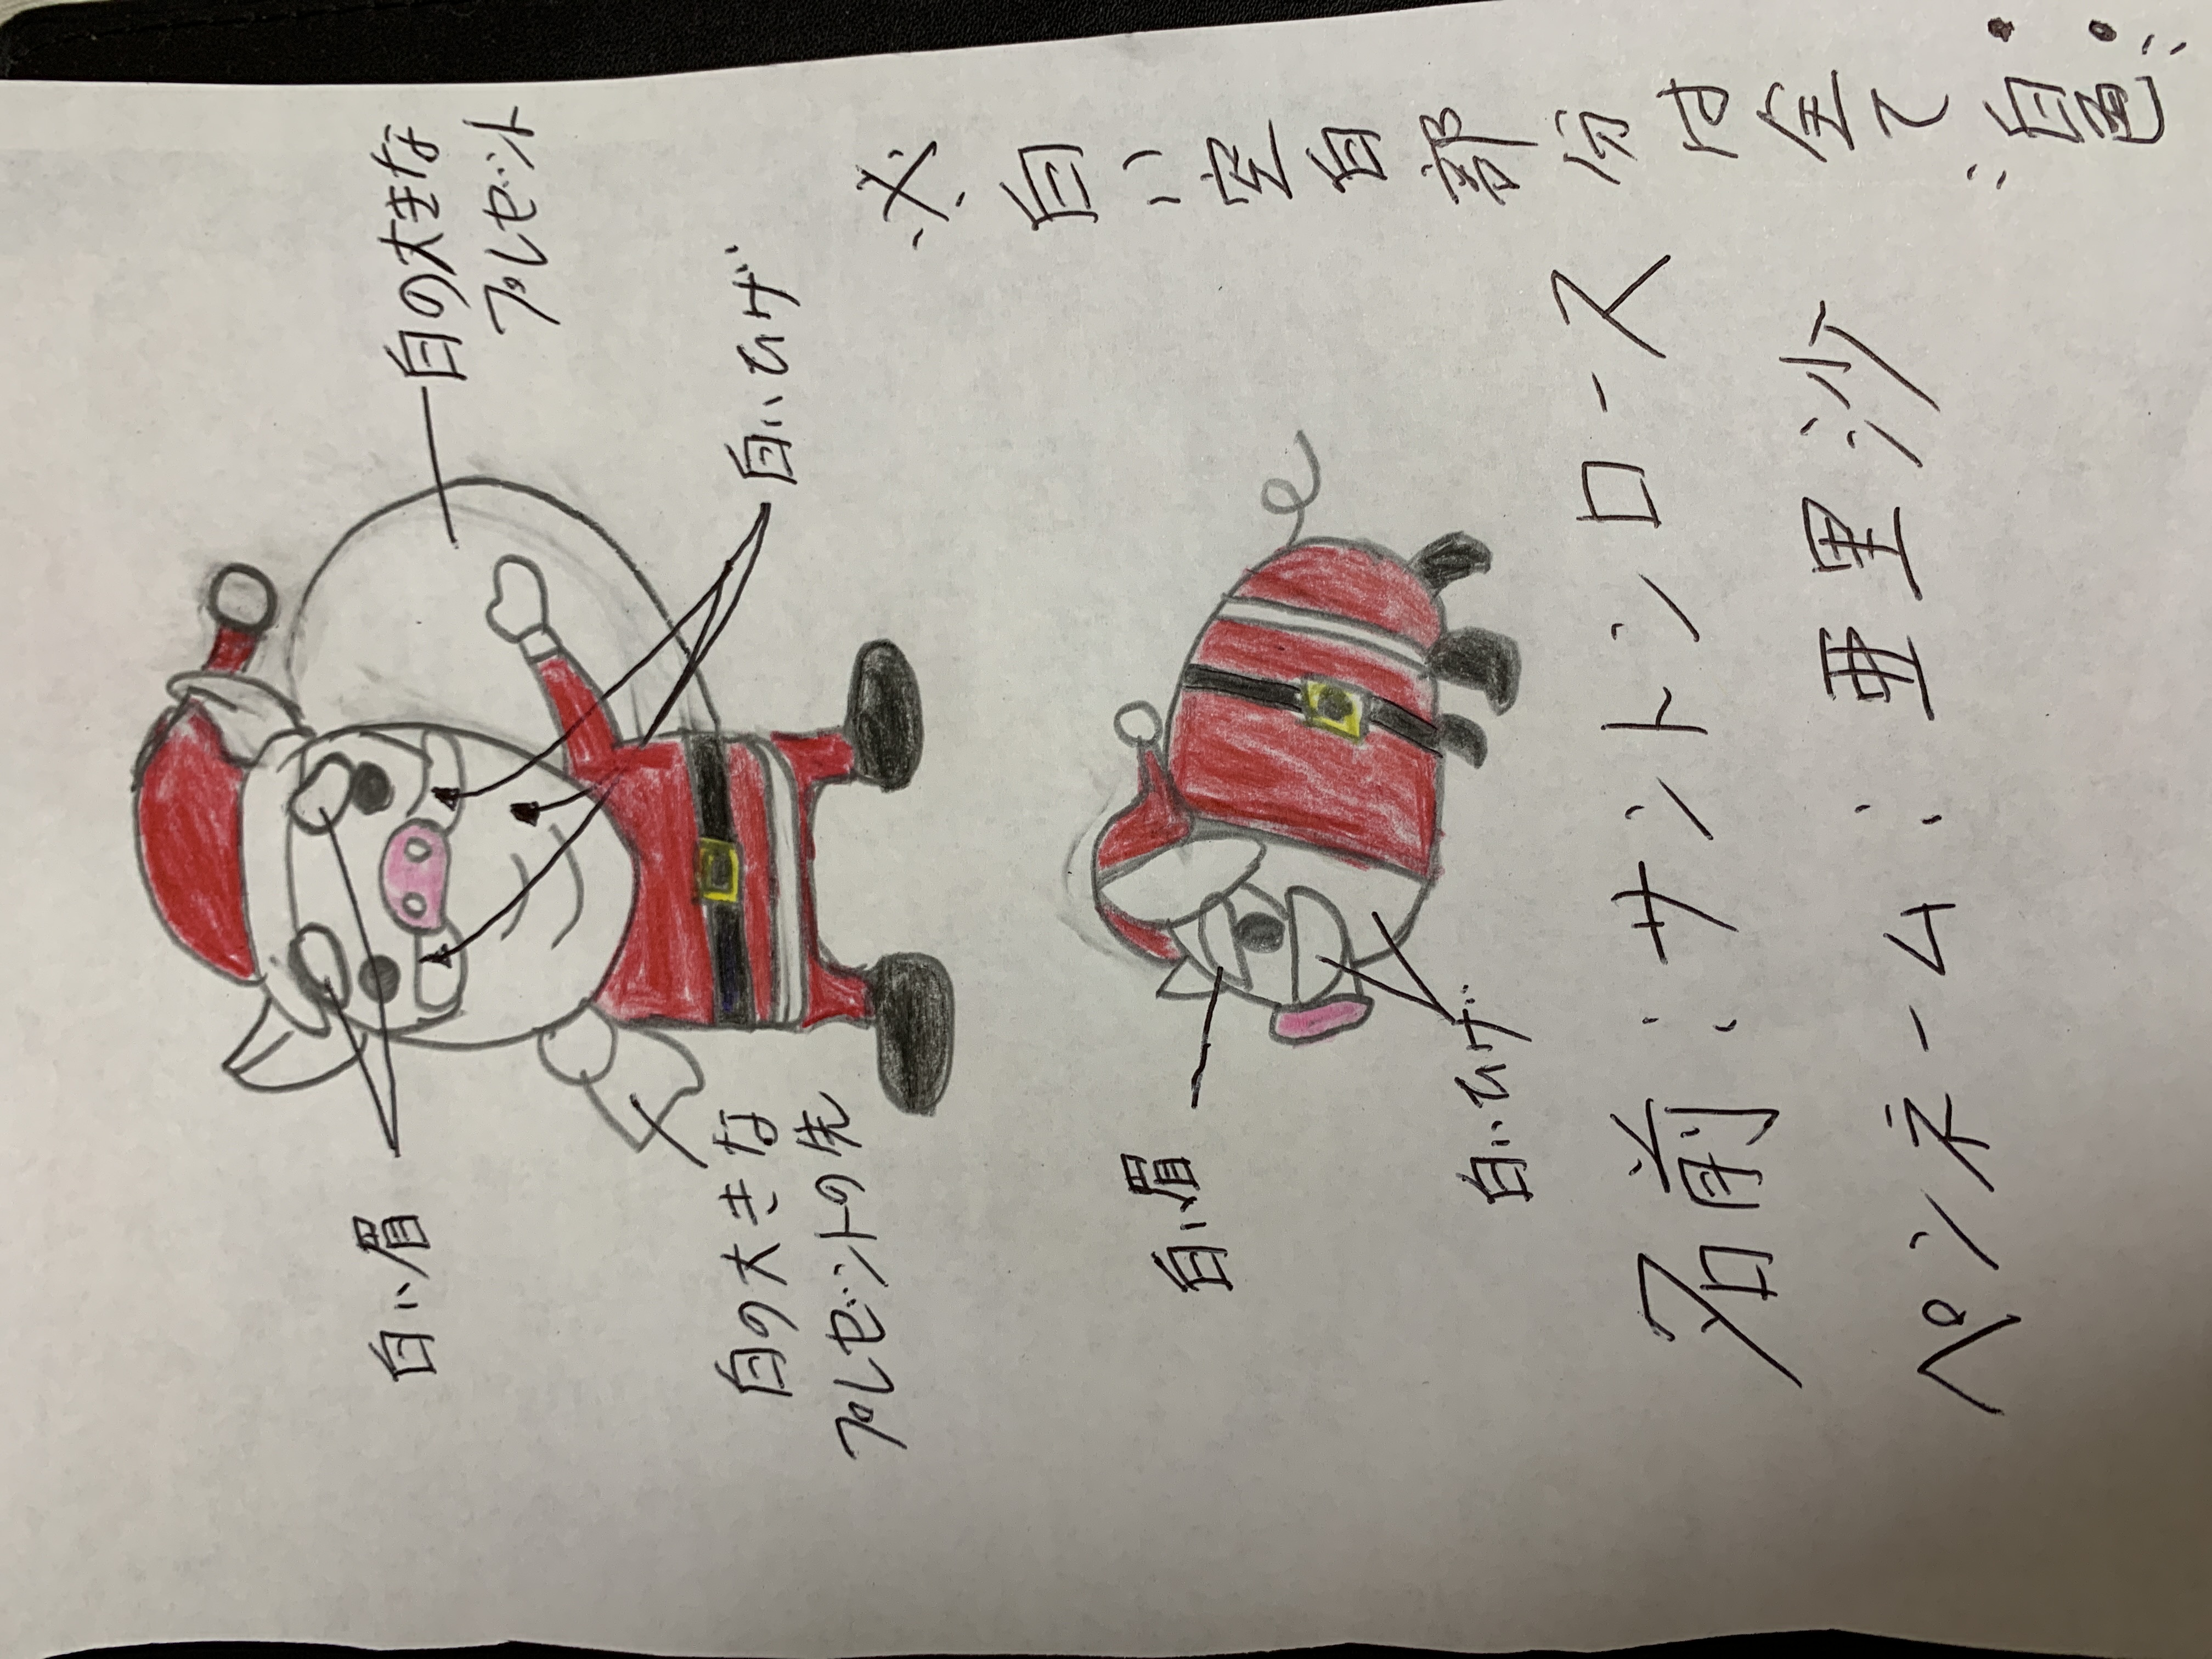 白い眉
白の大きな
プレゼント
白いひげ
白の大きな
プレセントの先
※白い空白部分は全て"白色"‼
白い眉
白いひげ
名前：サントンロース
ペンネーム：亜里沙